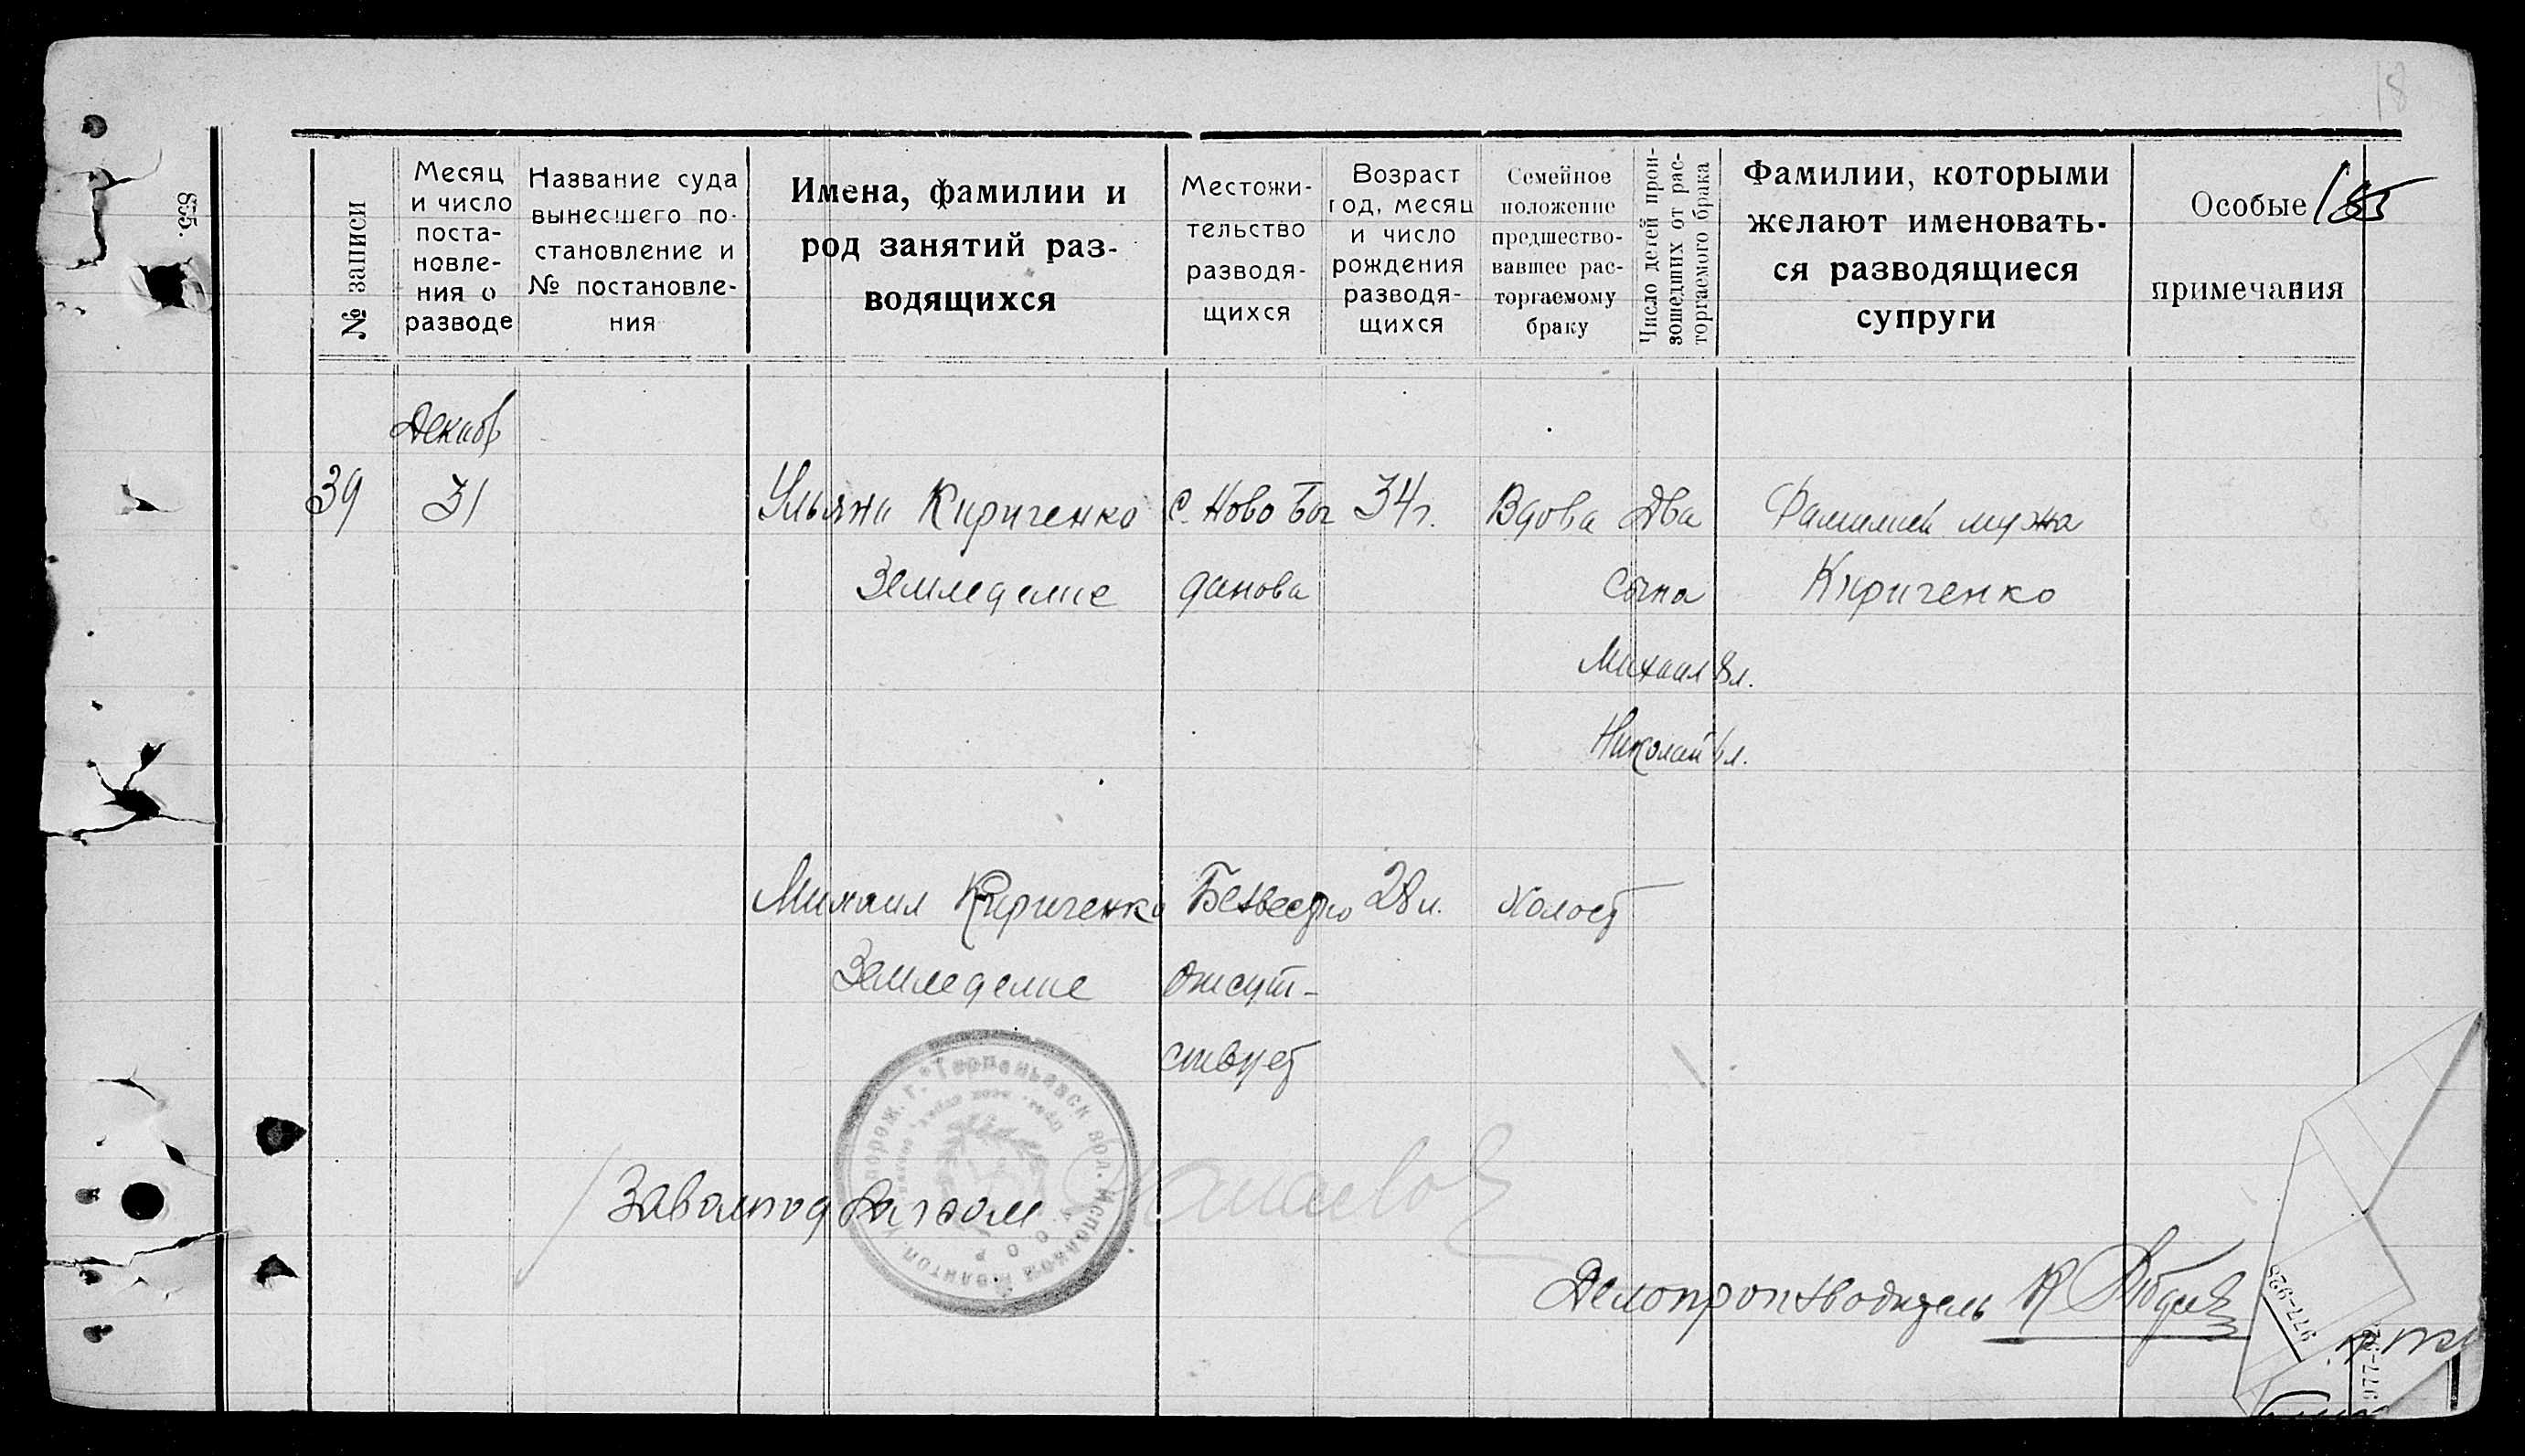 18
855.
№ записи
Месяц и число поста-новле-ния о разводе
Название суда вынесшего по-становление и № постановле-ния
Имена, фамилии и род занятий раз-водящихся
Местожи-тельство разводя-щихся
Возраст год, месяц и число рождения разводя-щихся
Семейное положение предшество-вавшее рас-торгаемому браку
Число детей прои-зошедших от рас-торгаемого брака
Фамилии, которыми желают именовать-ся разводящиеся супруги
Особые примечания
185
Декабр
39 31 Ульяна Кириченко с. Ново Бог 34 г. Вдова Два Фамилией мужа
Земледелие данова сына Кириченко
Михаил 8 л.
Николай л.
Михаил Кириченко Безвестно 28 л. Холост
Земледелие отсут-
ствует
Терпеньевск вол. Исполком
Мелитоп.
У.С.С.Р.
Делопроизводитель
977-928